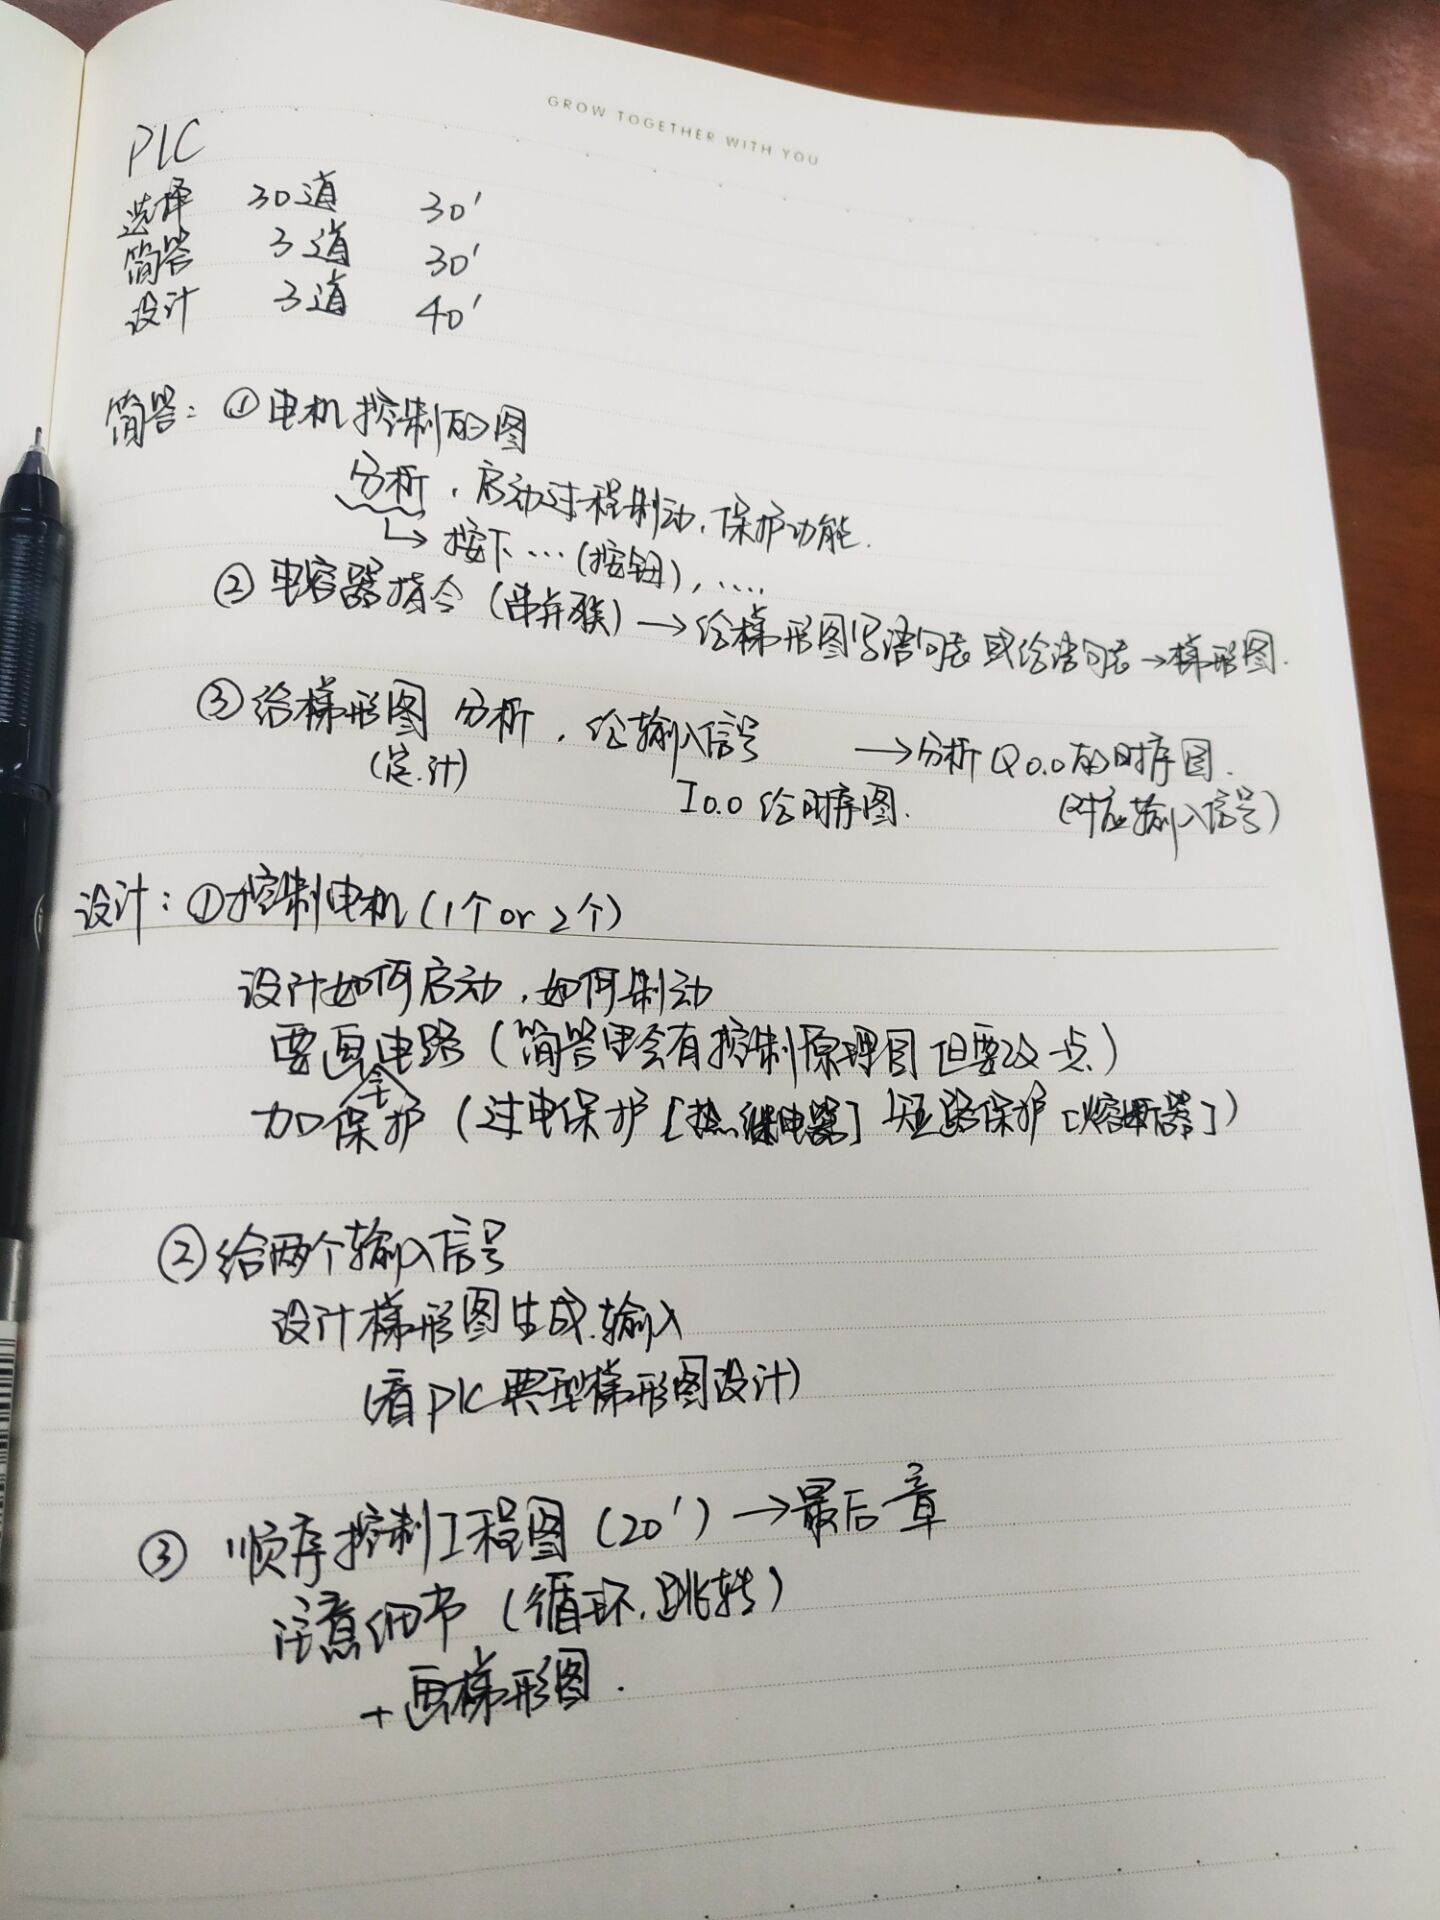 GROW TOGETHER WITH YOU
PLC
选择 30道 30'
简答 3道 30'
设计 3道 40'
简答：① 电机控制的图
分析，启动过程制动，保护功能.
↳ 按下…(按钮)，….
② 电容器指令 (串并联) → 给梯形图写语句表 或给语句表→梯形图.
③ 给梯形图 分析，给输入信号 → 分析 Q0.0 的时序图.
(定.计) I0.0 给时序图. (对应输入信号)
设计：① 控制电机 (1个 or 2个)
设计如何启动，如何制动
要画电路 (简答中会有控制原理图 但要改一点)
加全保护 (过电保护 [热继电器] 短路保护 [熔断器])
② 给两个输入信号
设计梯形图生成.输入
(看 PLC 典型梯形图设计)
③ 顺序控制工程图 (20') → 最后一章
注意细节 (循环.跳转)
+ 画梯形图.